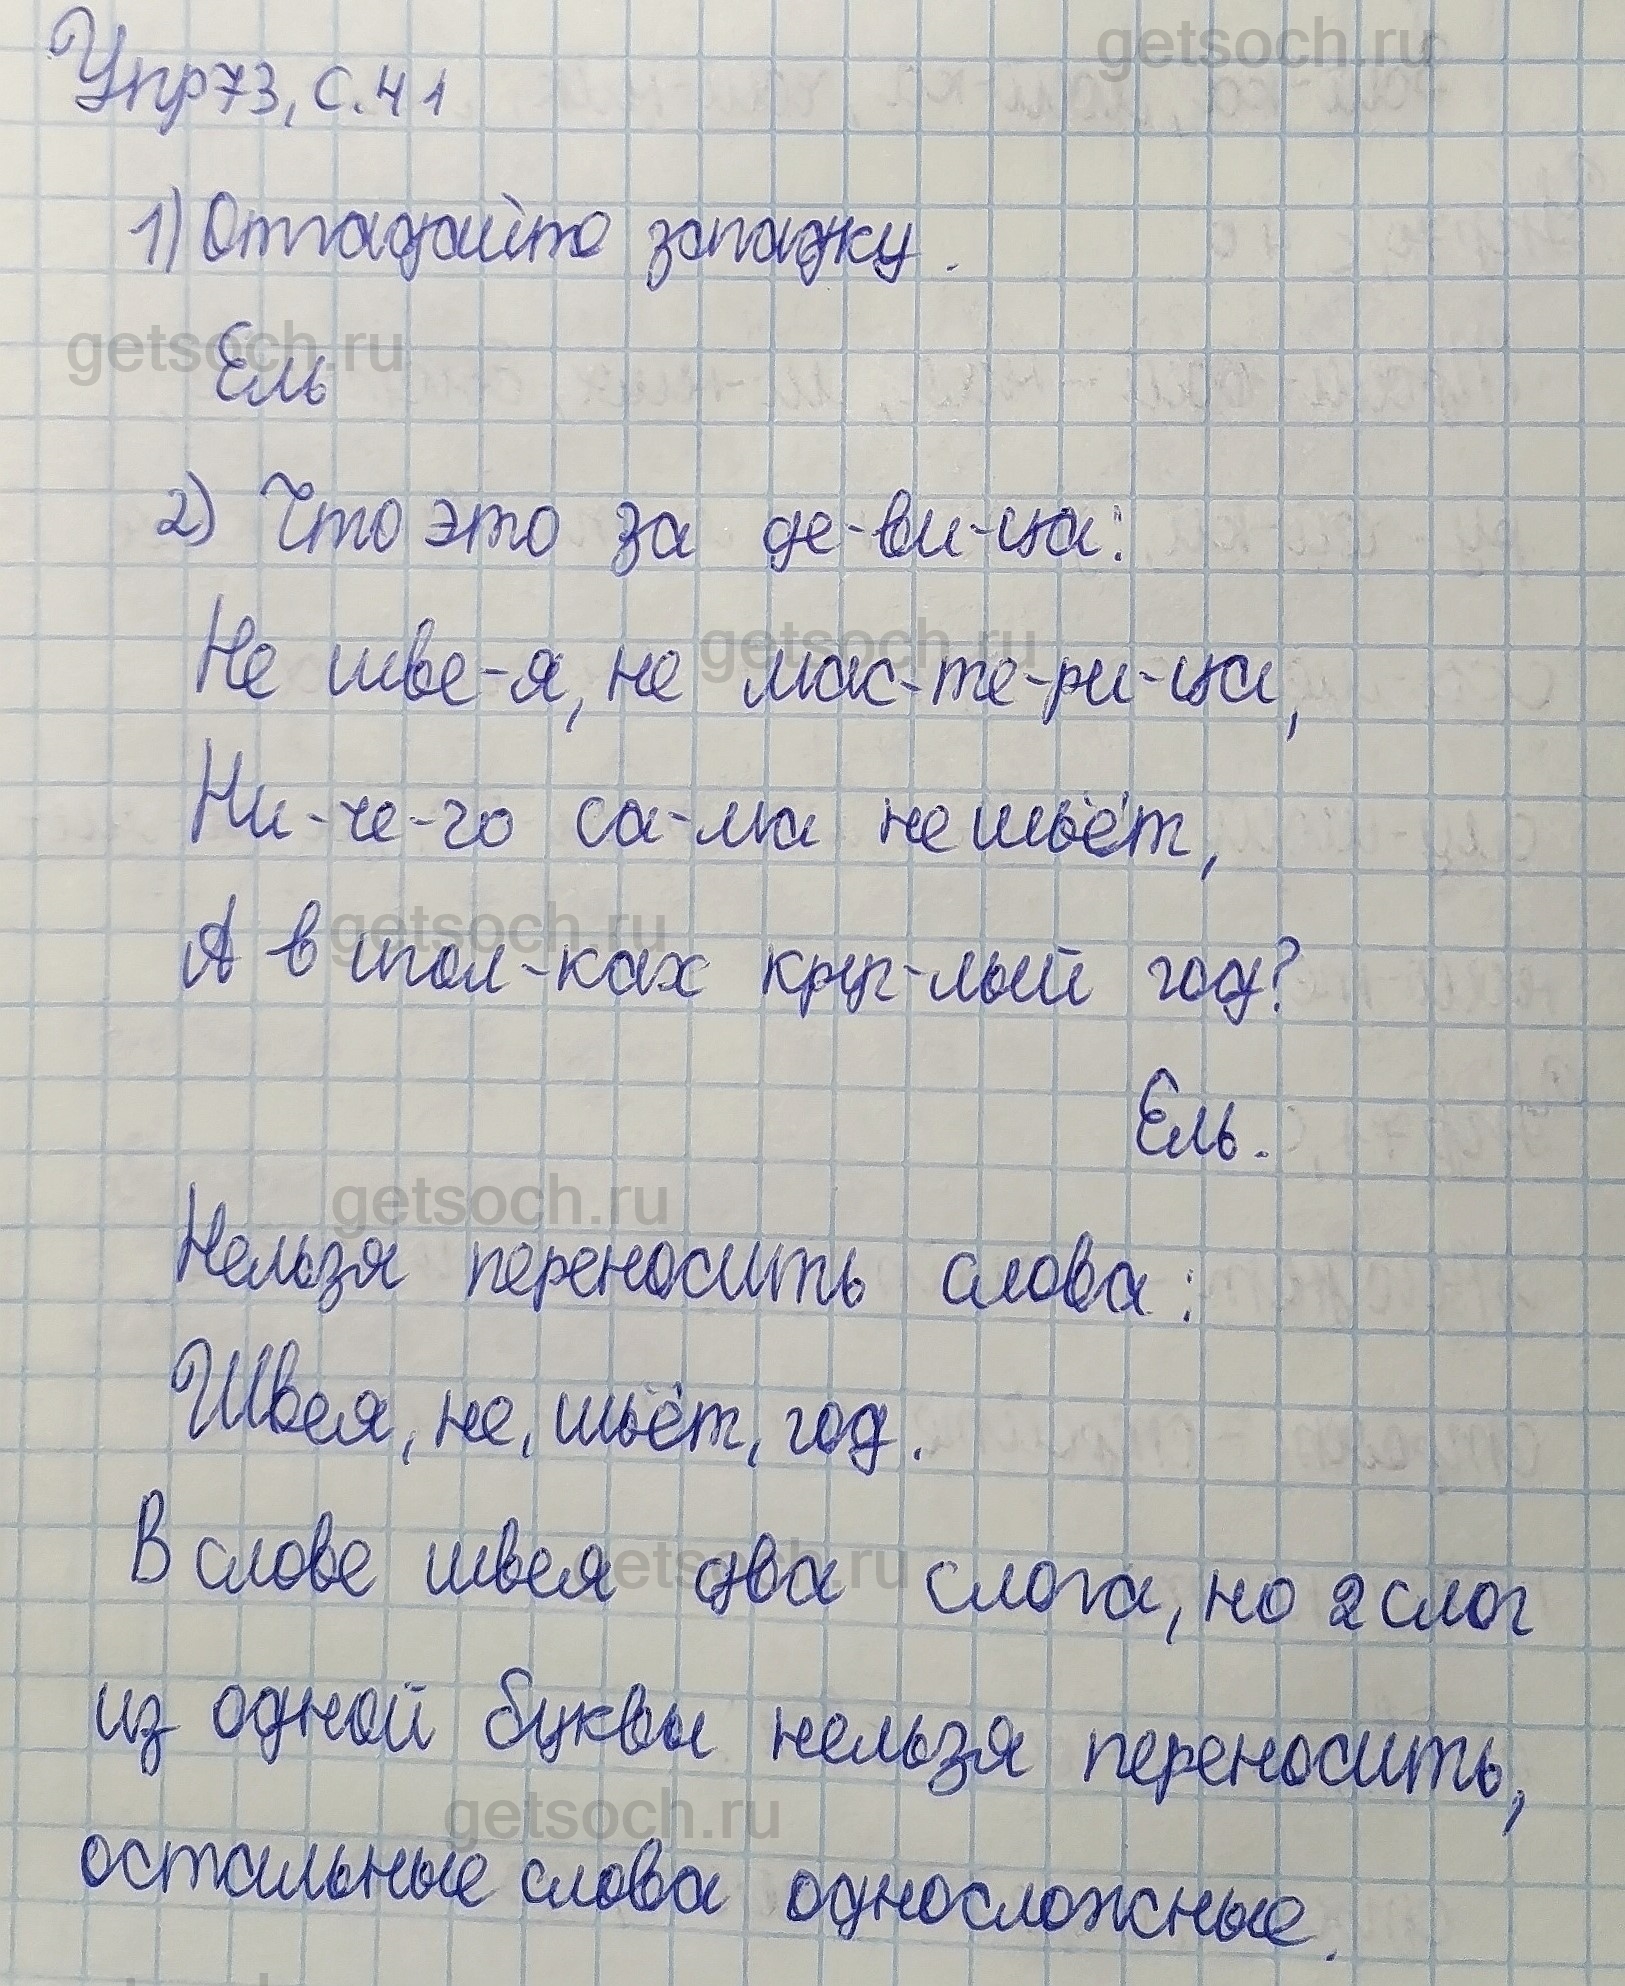 getsoch.ru
Упр73, с.41
1) Отгадайте загадку.
getsoch.ru
Ель
2) Что это за де-ви-ца:
getsoch.ru
Не шве-я, не мас-те-ри-ца,
Ни-че-го са-ма не шьёт,
getsoch.ru
А в игол-ках круг-лый год?
Ель.
getsoch.ru
Нельзя переносить слова:
Швея, не, шьёт, год.
getsoch.ru
В слове швея два слога, но 2 слог
из одной буквы нельзя переносить,
getsoch.ru
остальные слова односложные.